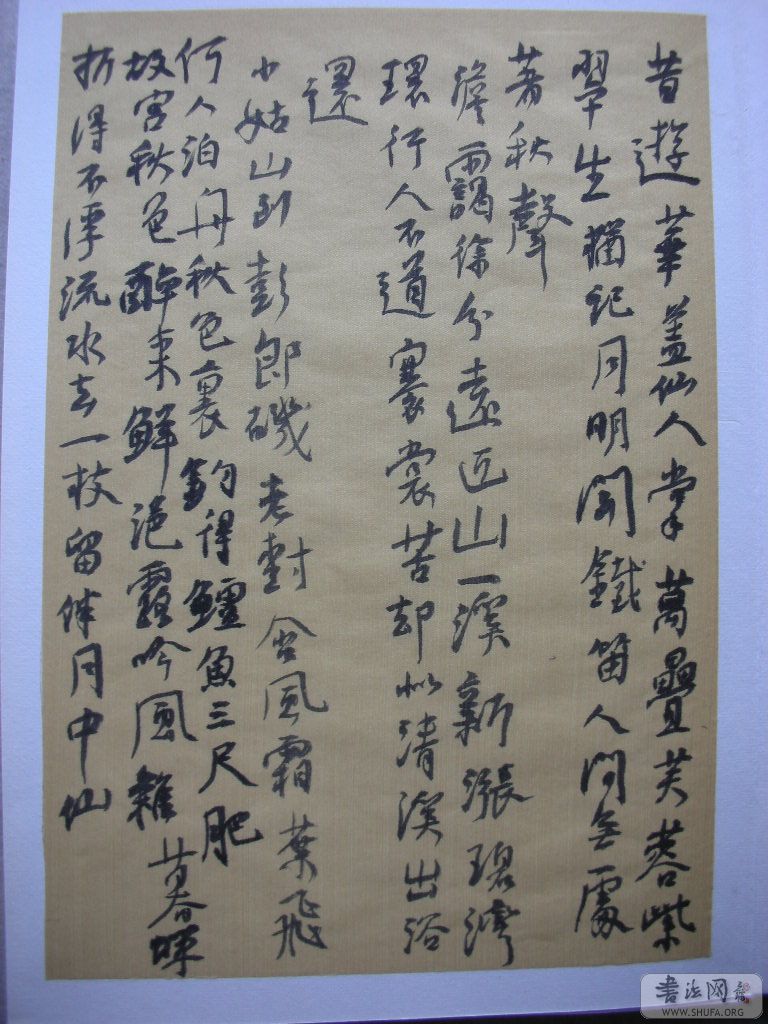 昔遊華蓋仙人掌萬疊芙蓉紫
翠生猶記月明聞鐵笛人間無處
著秋聲
澹靄徐分遠近山一溪新漲碧灣
環行人不道褰裳苦却似清溪出浴
還
小姑山到彭郎磯老樹含風霜葉飛
何人泊舟秋色裏釣得鱣魚三尺肥
故宮秋色醉來鮮浥露吟風雜暮蟬
折得不流水去一枝留伴月中仙
書法网
WWW.SHUFA.ORG